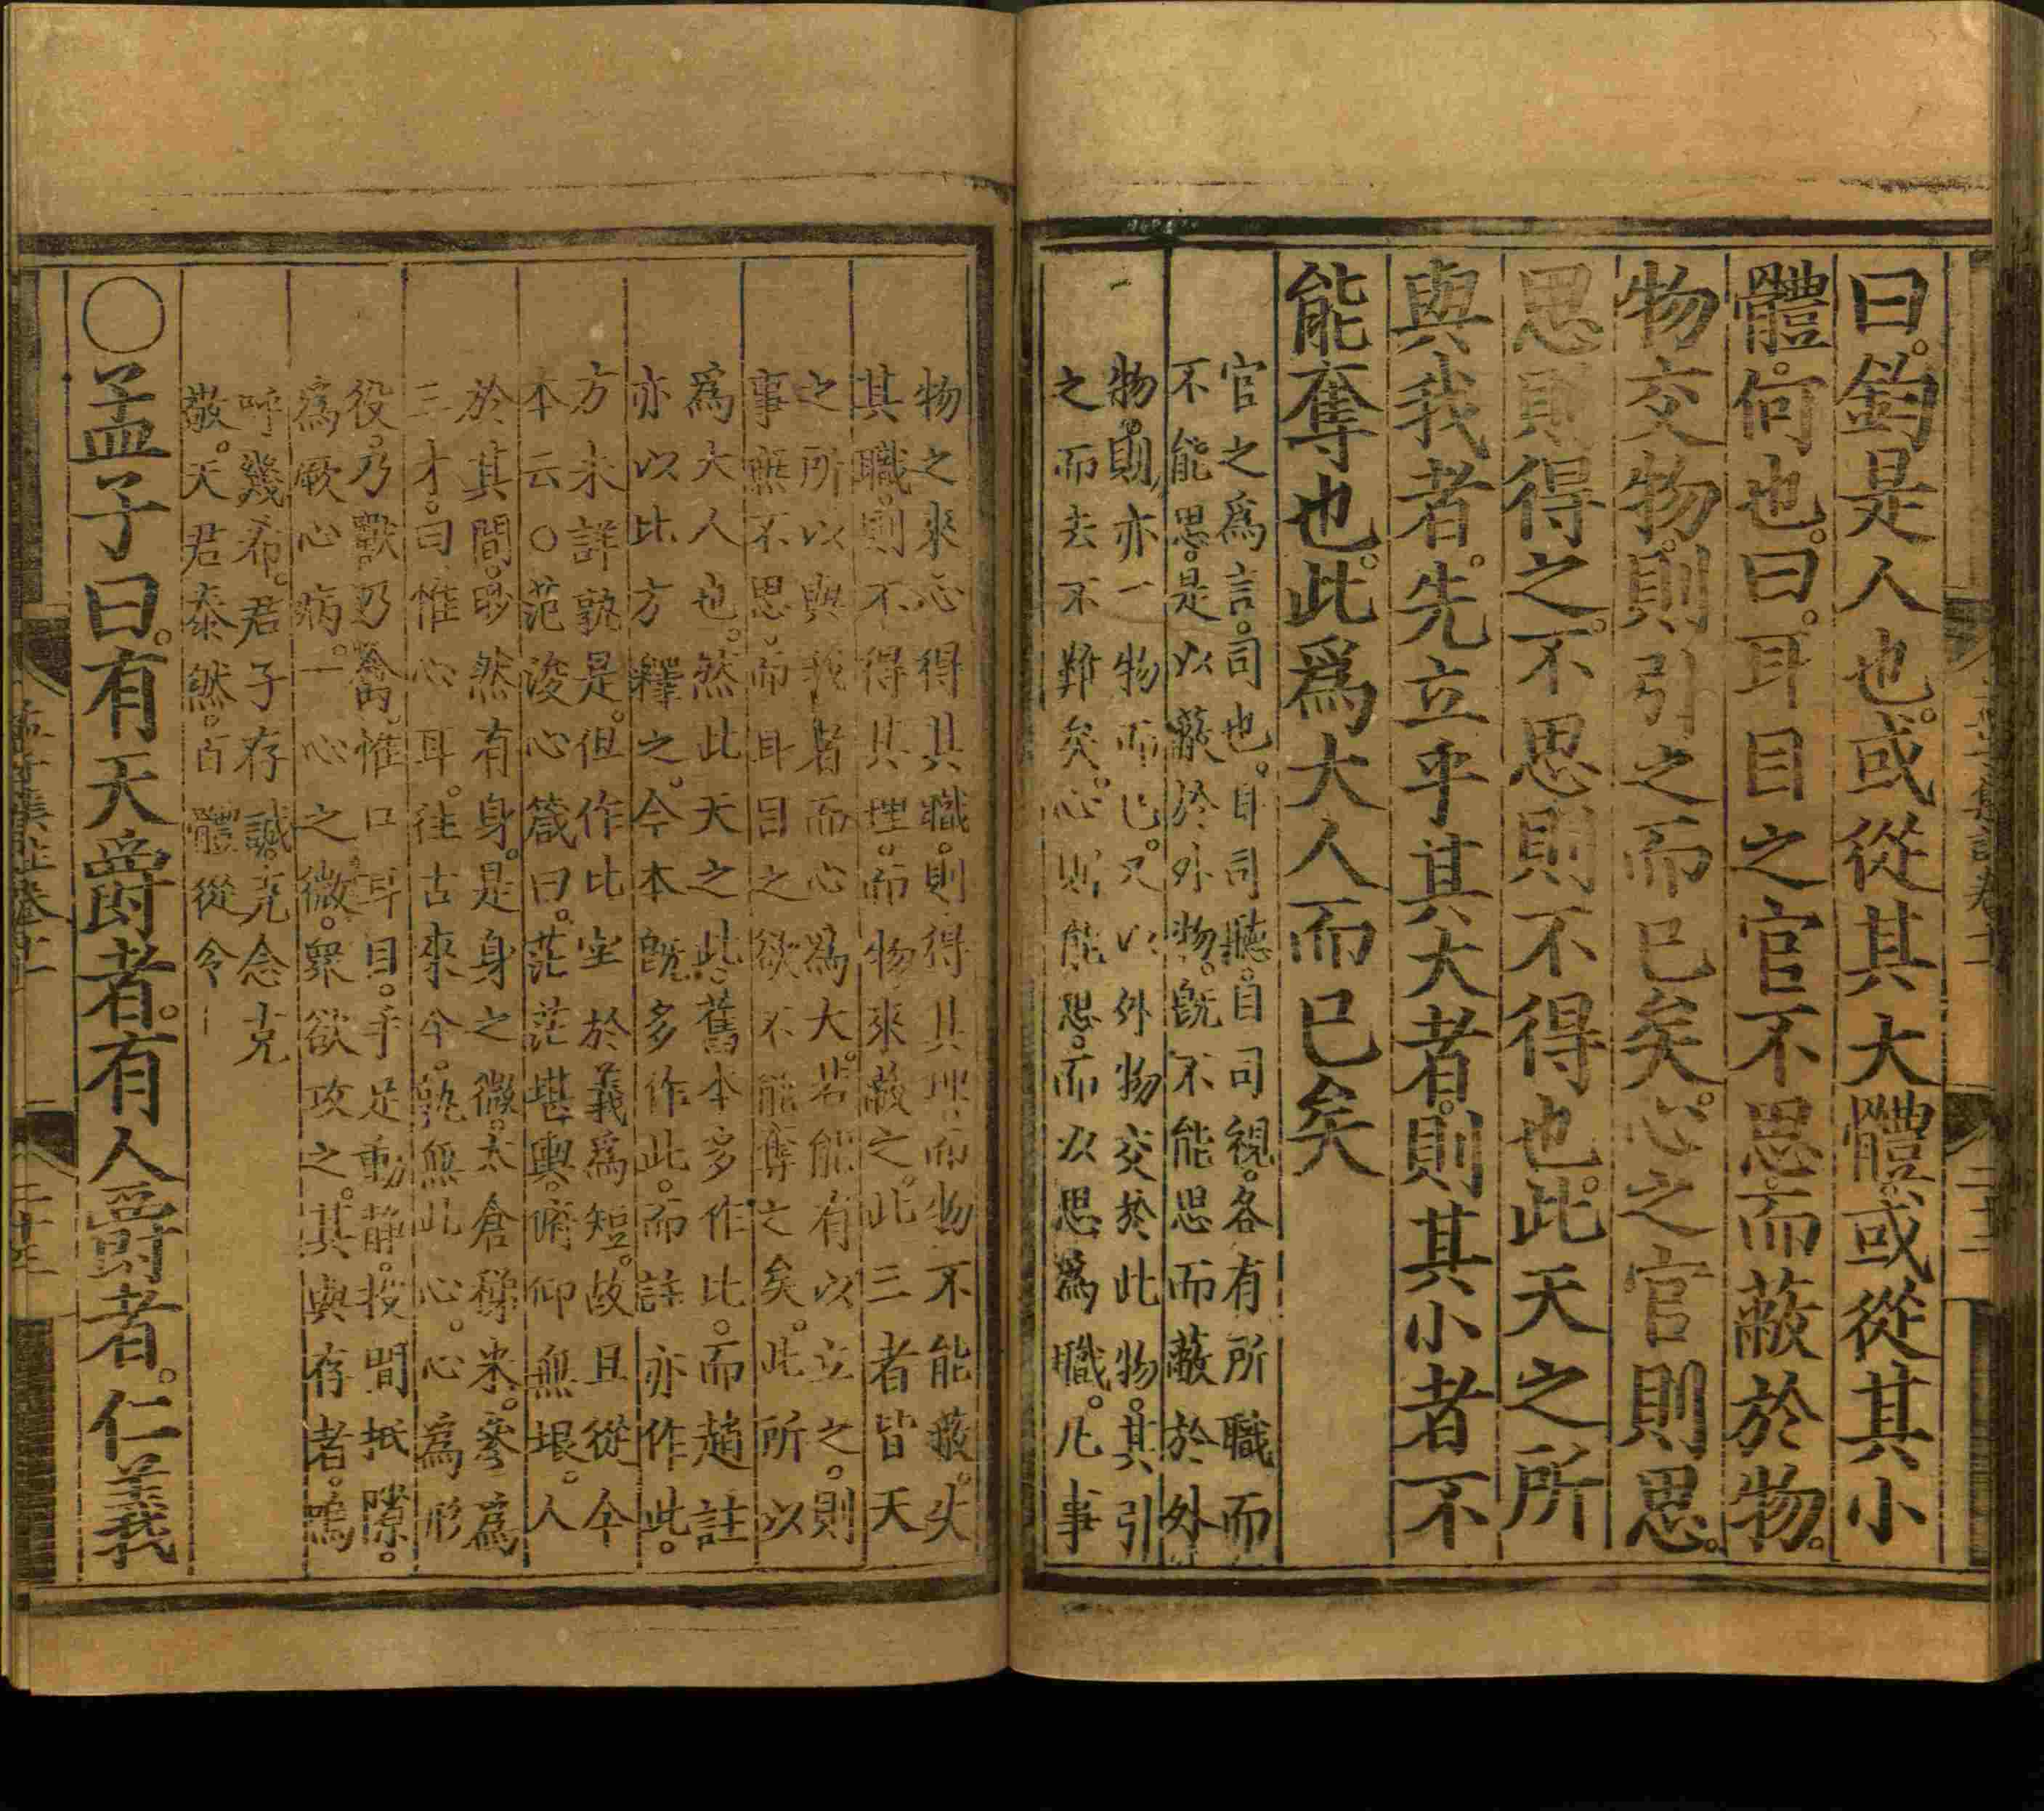 曰。鈞是人也。或從其大體。或從其小
體。何也。曰。耳目之官不思。而蔽於物。
物交物。則引之而已矣。心之官則思。
思則得之。不思則不得也。此天之所
與我者。先立乎其大者。則其小者不
能奪也。此爲大人而已矣
官之爲言。司也。耳司聽。目司視。各有所職而
不能思。是以蔽於外物。旣不能思而蔽於外
物。則亦一物而已。又以外物交於此物。其引
之而去不難矣。心則能思。而以思爲職。凡事
物之來。心得其職。則得其理。而物不能蔽。失
其職。則不得其理。而物來蔽之。此三者皆天
之所以與我者。而心爲大。若能有以立之。則
事無不思。而耳目之欲不能奪之矣。此所以
爲大人也。然此天之此。舊本多作比。而趙註
亦以比方釋之。今本旣多作此。而註亦作此。
方未詳孰是。但作比。字於義爲短。故且從今
本云○范浚心箴曰。茫茫堪輿。俯仰無垠。人
於其間。眇然有身。是身之微。太倉稊米。參爲
三才。曰惟心耳。往古來今。孰無此心。心爲形
役。乃獸乃禽。惟口耳目。手足動靜。投間抵隙。
爲厥心病。一心之微。衆欲攻之。其與存者。嗚
呼幾希。君子存誠。克念克
敬。天君泰然。百體從令
○孟子曰。有天爵者。有人爵者。仁義